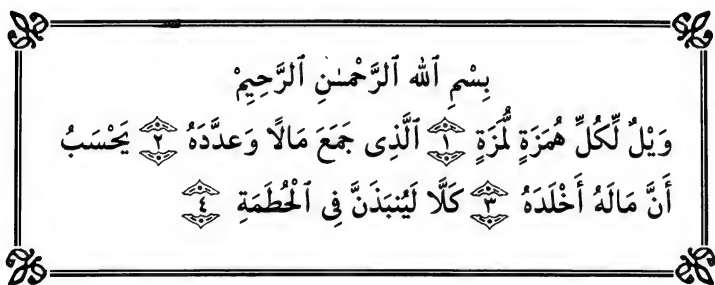 بِسْمِ ٱللهِ ٱلرَّحْمَـٰنِ ٱلرَّحِيمِ
وَيْلٌ لِّكُلِّ هُمَزَةٍ لُّمَزَةٍ ١ ٱلَّذِى جَمَعَ مَالًا وَعَدَّدَهُ ٢ يَحْسَبُ
أَنَّ مَالَهُ أَخْلَدَهُ ٣ كَلَّا لَيُنبَذَنَّ فِى ٱلْحُطَمَةِ ٤